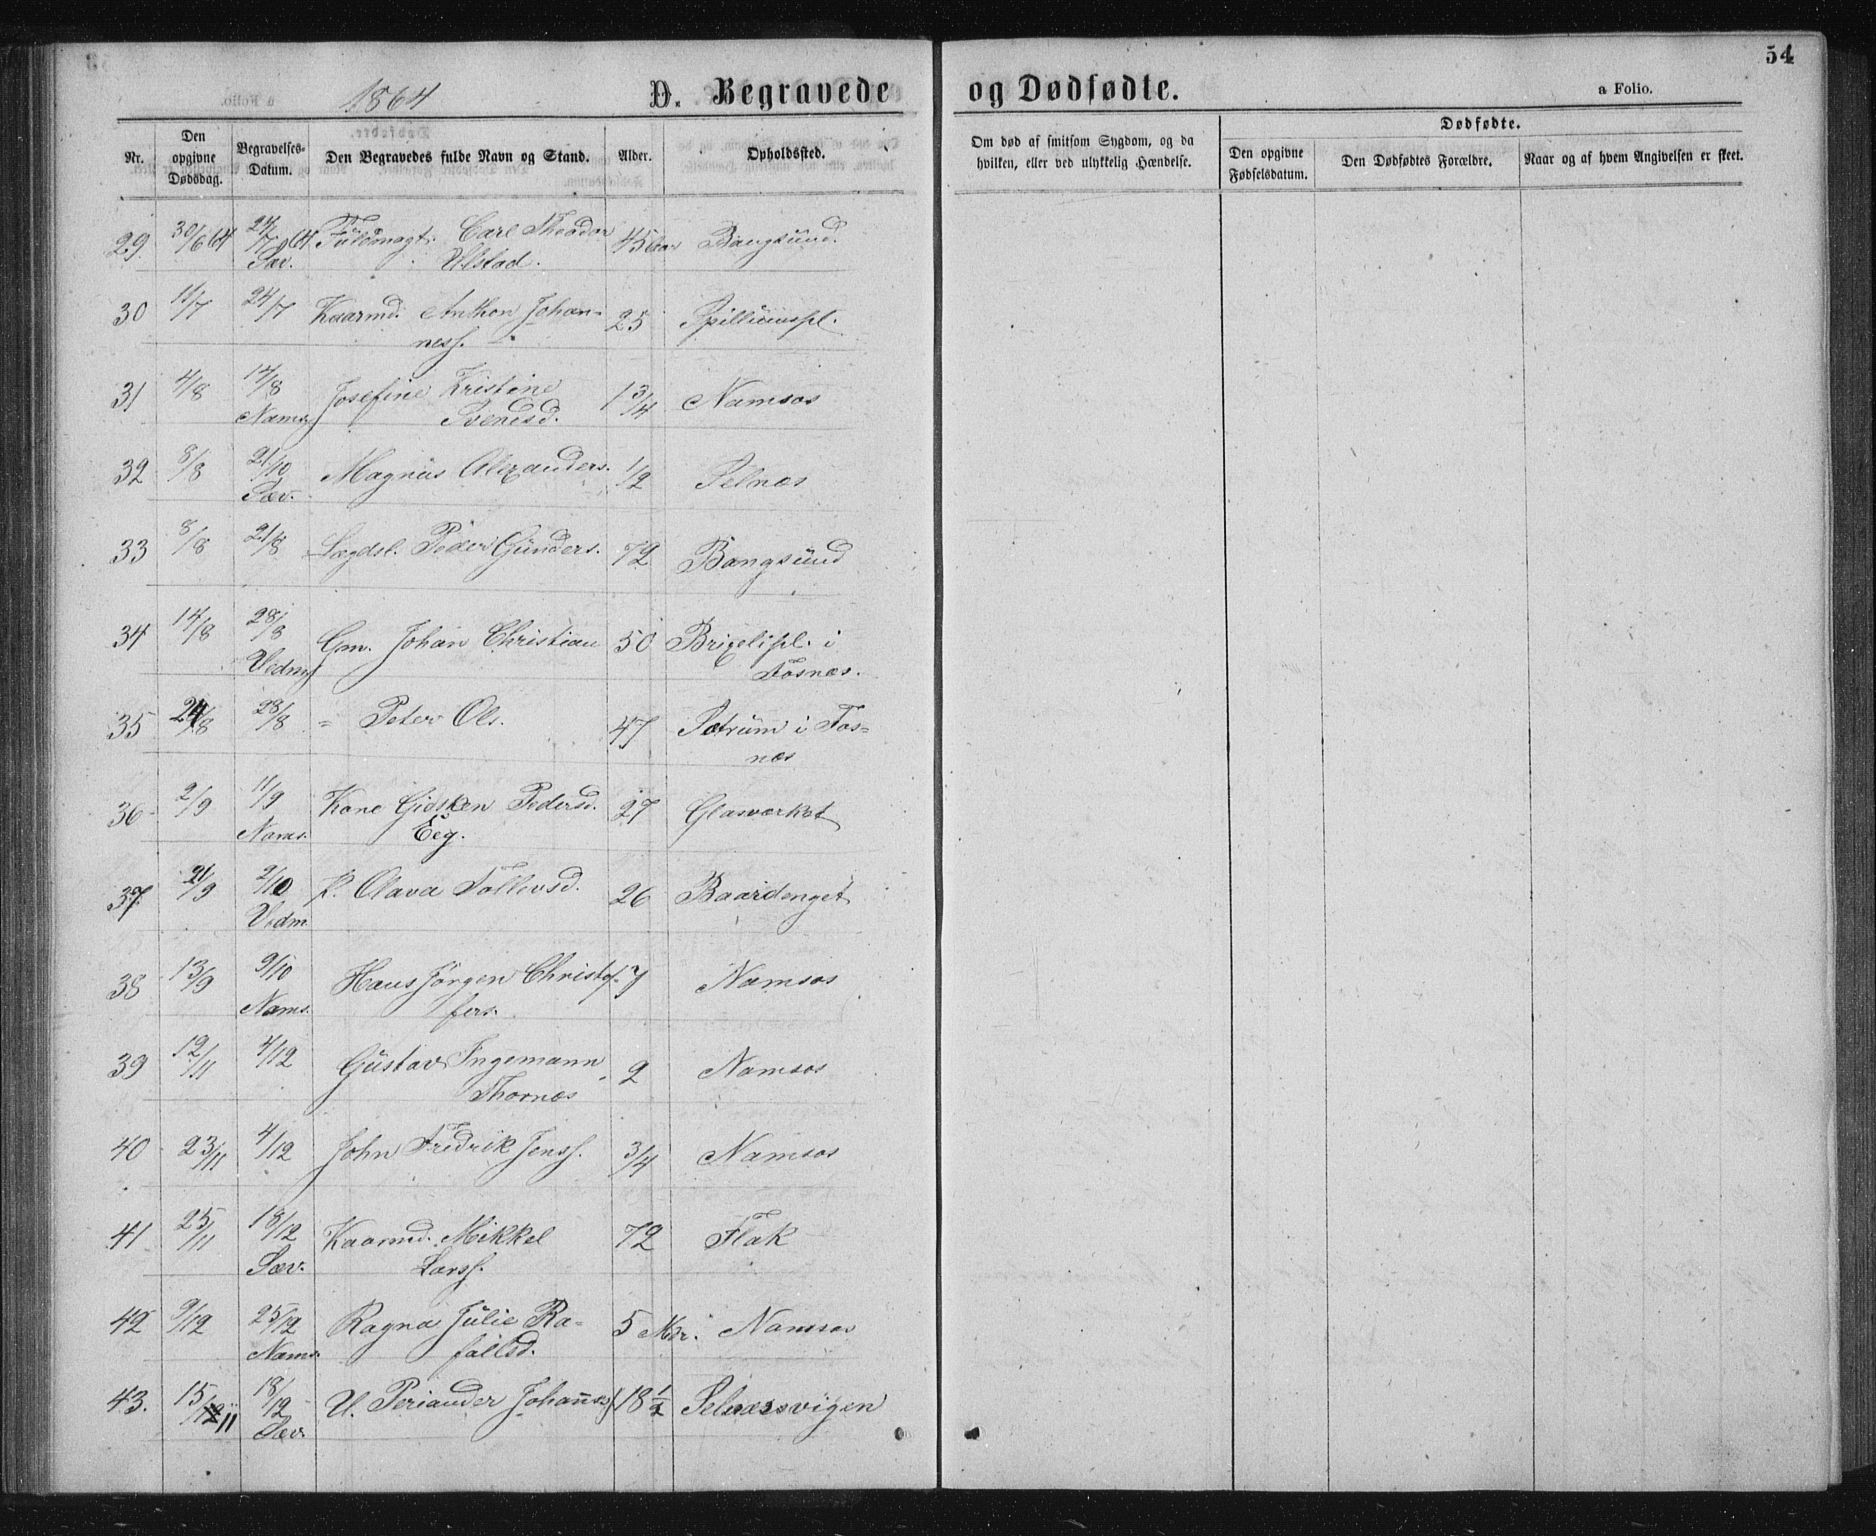 54
1864 D. Begravede og Dødfødte.
a Folio.
Nr. Den opgivne Dødsdag. Begravelses-Datum. Den Begravedes fulde Navn og Stand. Alder. Opholdssted. Om død af smitsom Sygdom, og da hvilken, eller ved ulykkelig Hændelse. Dødfødte.
Den opgivne Fødselsdatum. Den Dødfødtes Forældre. Naar og af hvem Angivelsen er skeet.
29 30/6 64 24/7 64 Fuldmægt. Carl Theodor 45 Aar Bangsund.
Sæv. Ulstad.
30 11/7 24/7 Kaarmd. Anthon Johan- 25 Spillumspl.
ness.
31 4/8 14/8 Josefine Kristine 1 3/4 Namsos
Nams. Svensd.
32 8/8 21/10 Magnus Alexanders. 1/2 Selnæs
Sæv.
33 8/8 21/8 Lægdsl. Peder Gunders. 72 Bangsund
34 14/8 28/8 Gm. Johan Christian 50 Brixelipl. i
Vedm. Fosnæs.
35 24/8 28/8 " Peter Ols. 47 Sætrum i Fos-
næs
36 2/9 11/9 Kone Gidsken Pedersd. 27 Glasværket
Nams. Eeg.
37 21/9 2/10 P. Olava Tollevsd. 26 Baardenget
Vedm.
38 13/9 9/10 Hans Jörgen Christof- 7 Namsos
Nams. fers.
39 12/11 4/12 Gustav Ingemann 2 Namsos
Thornæs
40 23/11 4/12 John Fredrik Jenss. 3/4 Namsos
41 25/11 18/12 Kaarmd. Mikkel 72 Flak
Sæv. Larss.
42 9/12 25/12 Ragna Julie Ra- 5 Mdr. Namsos
Nams. faelsd.
43. 15/11 18/12 U. Periander Johannes. 18 1/2 Selnæsvigen
Sæv.